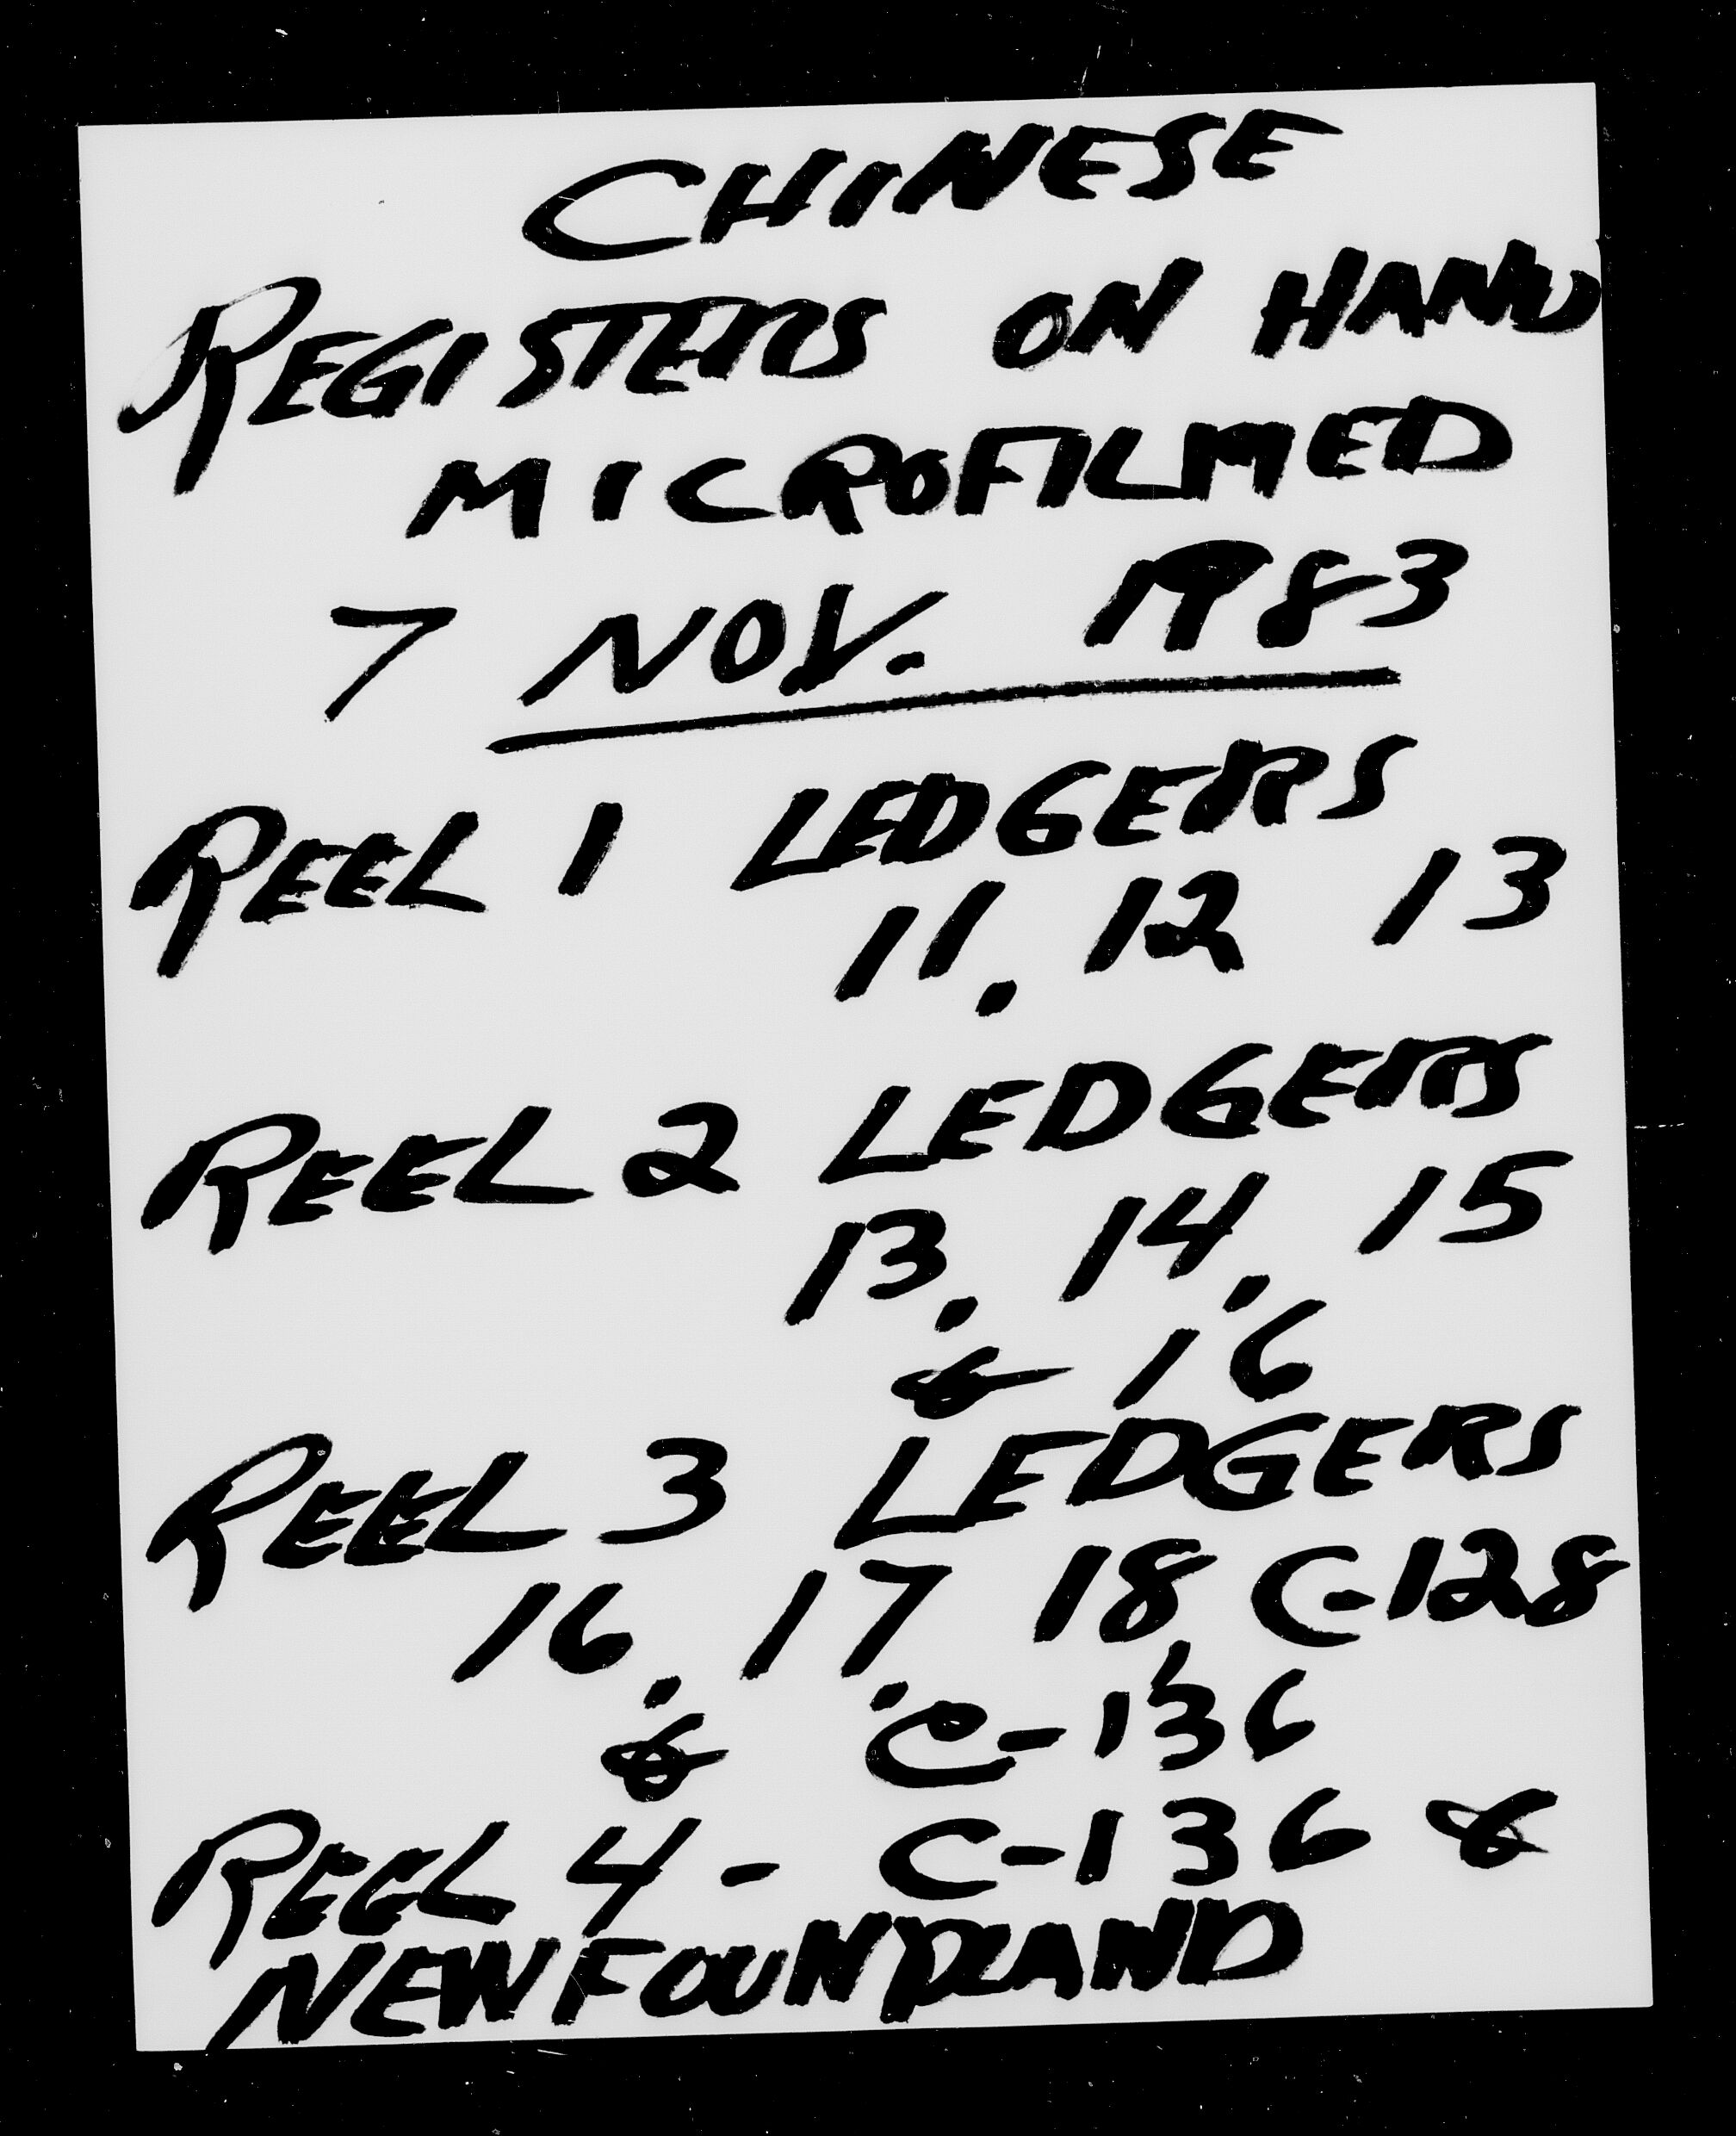 CHINESE
REGISTERS ON HAND
MICROFILMED
7 NOV. 1983
REEL 1 LEDGERS
11, 12 13
REEL 2 LEDGERS
13, 14, 15
& 16
REEL 3 LEDGERS
16, 17, 18, C-128
& C-136
REEL 4 - C-136 &
NEWFOUNDLAND